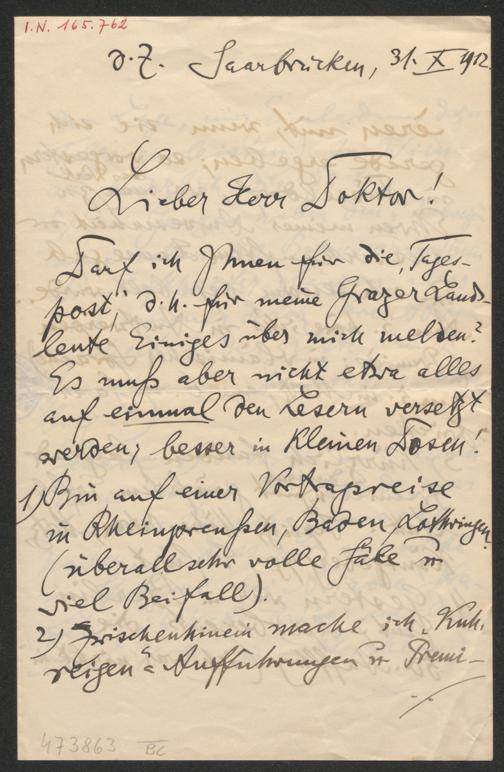 I.N. 165.762
d. Z. Saarbrücken, 31. X 1912.
Lieber Herr Doktor!
Darf ich Ihnen für die „Tages-
post“, d. h. für meine Grazer Lands-
leute Einiges über mich melden?
Es muß aber nicht etwa alles
auf einmal den Lesern versetzt
werden, besser in kleinen Dosen!
1) Bin auf einer Vortragsreise
in Rheinpreußen, Baden, Lothringen
(überall sehr volle Säle u
viel Beifall).
2) Zwischenhinein mache ich „Kuh-
reigen“-Aufführungen u Premi-
./.
473863 BC